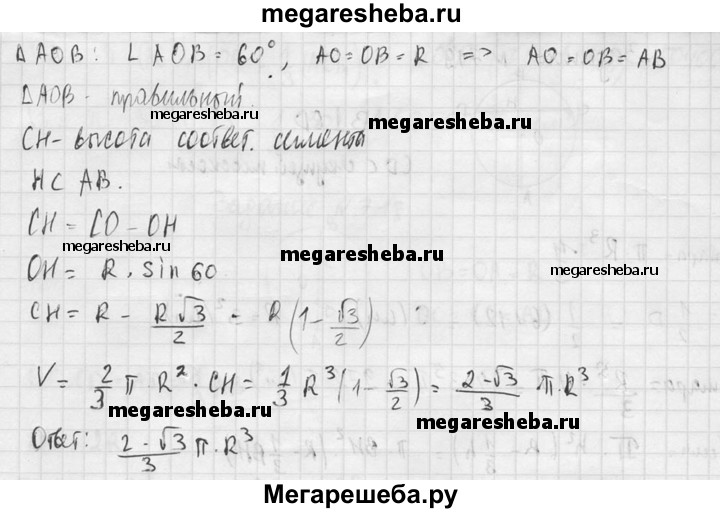 megaresheba.ru
Δ AOB: ∠ AOB = 60°, AO = OB = R => AO = OB = AB
Δ AOB - правильный.
megaresheba.ru megaresheba.ru
CH - высота соответ. сегмента
HC AB.
CH = CO - OH
megaresheba.ru megaresheba.ru megaresheba.ru
OH = R · sin 60
CH = R - R√3/2 = R(1 - √3/2)
V = 2/3 π R² · CH = 2/3 R³(1 - √3/2) = 2-√3/3 π · R³
megaresheba.ru megaresheba.ru
Ответ: 2-√3/3 π · R³
Мегарешеба.ру